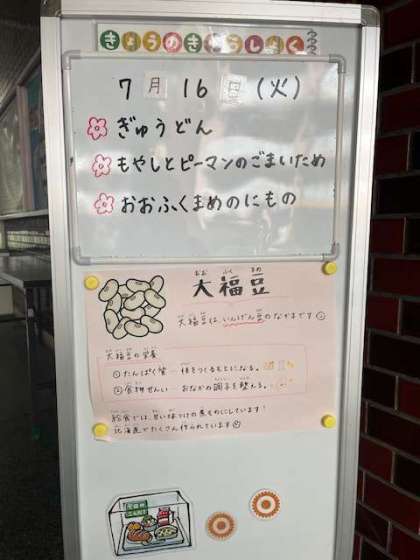 きょうのきゅうしょく
7月16日(火)
ぎゅうどん
もやしとピーマンのごまいため
おおふくまめのにもの
おお ふく まめ
大福豆
大福豆は、いんげん豆のなかまです
大福豆の栄養
①たんぱく質 ― 体をつくるもとになる。
②食物せんい ― おなかの調子を整える。
給食では、甘い味つけの煮ものにしています!
北海道でたくさん作られています